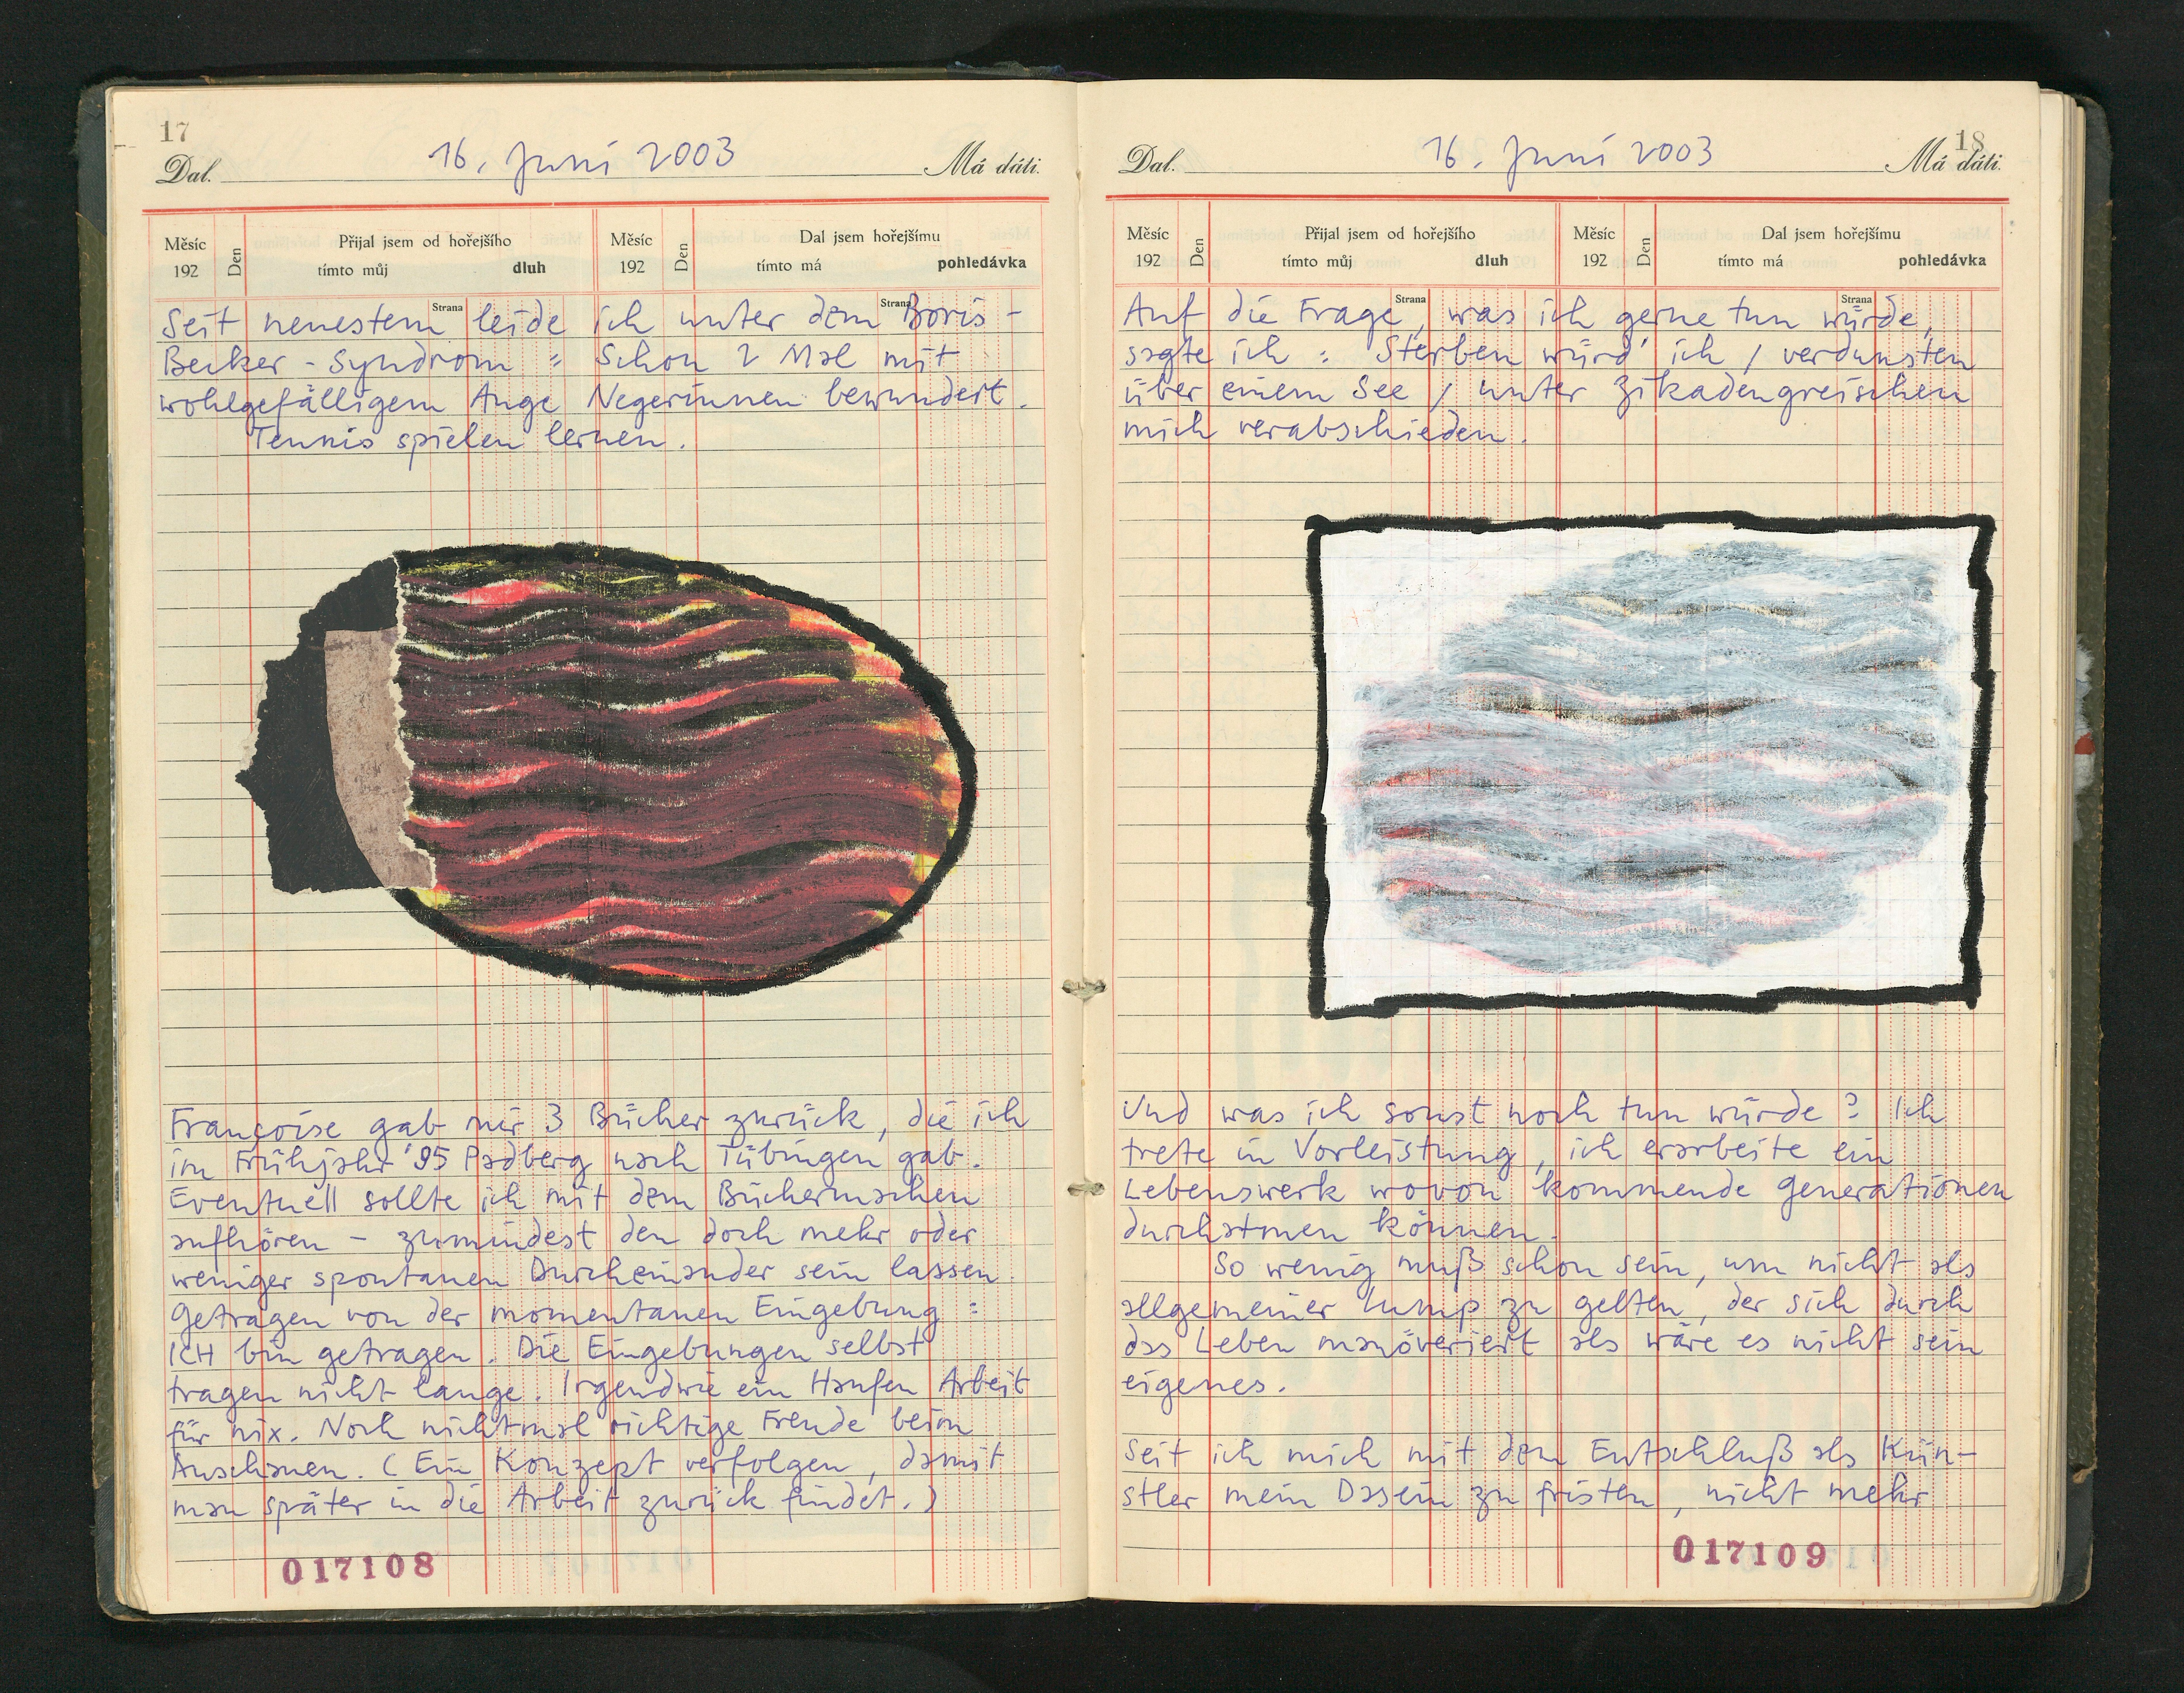 17
Dal. 16. Juni 2003 Má dáti.
Měsíc 192 Den Přijal jsem od hořejšího tímto můj dluh Měsíc 192 Den Dal jsem hořejšímu tímto má pohledávka
Strana Strana
Seit neuestem leide ich unter dem Boris-
Becker-Syndrom: Schon 2 Mal mit
wohlgefälligem Auge Negerinnen bewundert.
Tennis spielen lernen.
Françoise gab mir 3 Bücher zurück, die ich
im Frühjahr '95 Padberg nach Tübingen gab.
Eventuell sollte ich mit dem Büchermachen
aufhören - zumindest den doch mehr oder
weniger spontanen Durcheinander sein lassen.
Getragen von der momentanen Eingebung:
ICH bin getragen. Die Eingebungen selbst
tragen nicht lange. Irgendwie ein Haufen Arbeit
für nix. Noch nichtmal richtige Freude beim
Anschauen. (Ein Konzept verfolgen, damit
man später in die Arbeit zurück findet.)
017108
18
Dal. 16. Juni 2003 Má dáti.
Měsíc 192 Den Přijal jsem od hořejšího tímto můj dluh Měsíc 192 Den Dal jsem hořejšímu tímto má pohledávka
Strana Strana
Auf die Frage, was ich gerne tun würde,
sagte ich: Sterben würd' ich / verdunsten
über einem See / unter Zikadengreischen
mich verabschieden.
Und was ich sonst noch tun würde? Ich
trete in Vorleistung, ich erarbeite ein
Lebenswerk wovon kommende Generationen
durchatmen können.
So wenig muß schon sein, um nicht als
allgemeiner Lump zu gelten, der sich durch
das Leben manöveriert als wäre es nicht sein
eigenes.
Seit ich mich mit dem Entschluß als Kün-
stler mein Dasein zu fristen, nicht mehr
017109